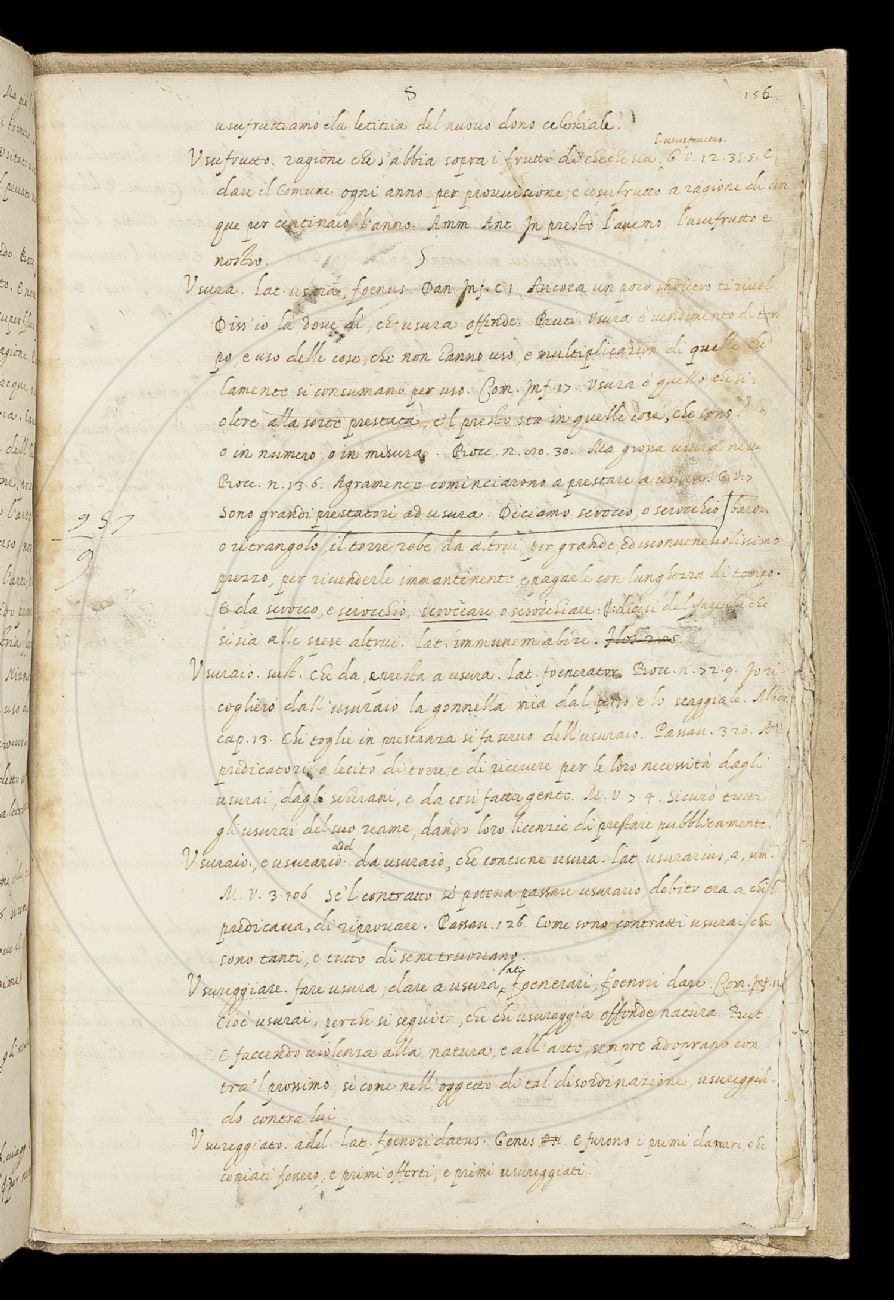 S 156
usufruttiamo ela letitia del nuovo dono celestiale.
L. ususfructus.
Usufrutto. ragione che s'abbia sopra i frutti di che che sia. G. V. 12. 35. 5. E
dare il Comune ogni anno per provvisione, e usufrutto a ragione di cin
que per centinaio l'anno. Amm. Ant. In presto l'avemo, l'usufrutto è
nostro.
Usura. Lat. usura, foenus. Dan. Inf. C. 1 Ancora un poco indietro ti rivol
Diss'io la dove di, ch'usura offende. But. Usura è vendimento di tem
po, e uso delle cose, che non hanno uso, e multiplicazion di quelle che
lamente si consumano per uso. Com. Inf. 17 Usura è quello che si
oltre alla sorte prestata, e'l presto sta in quelle cose, che sono
o in numero, o in misura. Bocc. n. 30. Ma grossa usura ne
Bocc. n. 13. 6. Agramente cominciarono a prestare a usura. G. V. 7
Sono grandi prestatori ad usura. Diciamo scrocco, o scrocchio, baroc
957
9
o ritrangolo, il torre robe, da altrui, per grande, e disconvenevolissimo
prezzo, per rivenderle immantinente e pagarle con lunghezza di tempo.
E da scrocco, e scrocchio, scroccare o scrocchiare. dicesi del fare che che
si sia alle spese altrui. Lat. immunem abire.
Usuraio. sust. Che da, e presta a usura. Lat. foenerator. Bocc. n. 72. 9. Io ri
coglierò dall'usuraio la gonnella mia dal perso, e lo scaggiale. Alber.
cap. 13. Chi toglie in prestanza si fa servo dell'usuraio. Passav. 320. A
predicatori è lecito di torre, e di ricevere per le loro necessità dagli
usurai, dagli scherani, e da così fatta gente. M. V. 7 4. Sicurò tutti
gli usurai del suo reame, dando loro licenzie di prestare pubblicamente.
add.
Usuraio, e usurario. da usuraio, che contiene usura. Lat. usurarius, a, um.
M. V. 3. 106. Se'l contratto si poteva passare usurario debito era a chi'l
predicava, di riprovare. Passav. 126. Come sono contratti usurai, che
sono tanti, e tutto dì se ne truovano.
Lat.
Usureggiare. fare usura, dare a usura, foenerari, foenori dare. Com. Inf. 11
Cioè usurai, perche si seguita, che chi usureggia offende natura. But.
E faccendo violenza alla natura, e all'arte, sempre adoprano con
tra'l prossimo, sì come nell'oggetto di tal disordinazione, usureggian
do contra lui
Usureggiato. add. Lat. foenori datus. Genes. E furono i primi danari, che
coniati fossero, e primi offerti, e primi usureggiati.